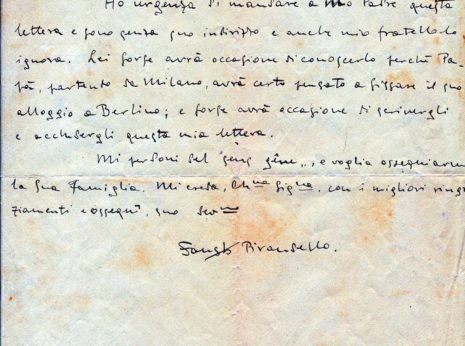 Ho urgenza di mandare a mio Padre questa
lettera e sono senza suo indirizzo e anche mio fratello lo
ignora. Lei forse avrà occasione di conoscerlo perchè Pa-
pà, partendo da Milano, avrà certo pensato a fissare il suo
alloggio a Berlino; e forse avrà occasione di scrivergli
e accludergli questa mia lettera.
Mi perdoni del "sans gêne", e voglia ossequiarmi
la Sua Famiglia. Mi creda, Ch.ma Sig.na, con i migliori ringra
ziamenti e ossequî, suo dev.mo
Pirandello.